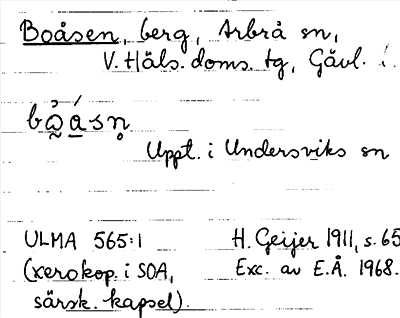 Boåsen, berg, Arbrå sn,
V. Häls. doms. tg, Gävl. l.
Uppt. i Undersviks sn
ULMA 565:1
(xerokop. i SOA,
särsk. kapsel).
H. Geijer 1911, s. 65
Exc. av E.Å. 1968.